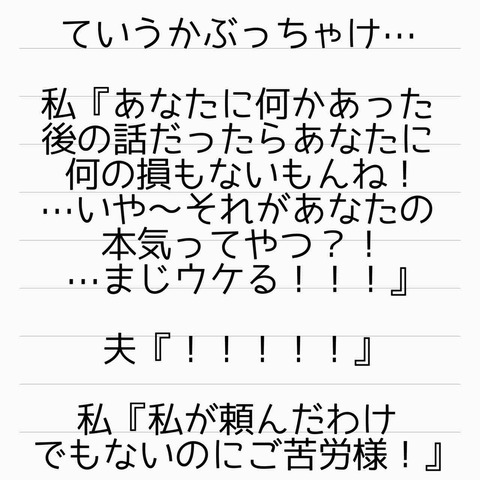 ていうかぶっちゃけ…
私『あなたに何かあった
後の話だったらあなたに
何の損もないもんね！
…いや〜それがあなたの
本気ってやつ？！
…まじウケる！！！』
夫『！！！！！』
私『私が頼んだわけ
でもないのにご苦労様！』